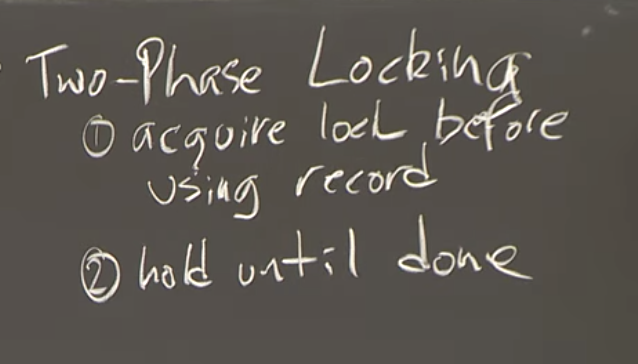 Two-Phase Locking
① acquire lock before
using record
② hold until done